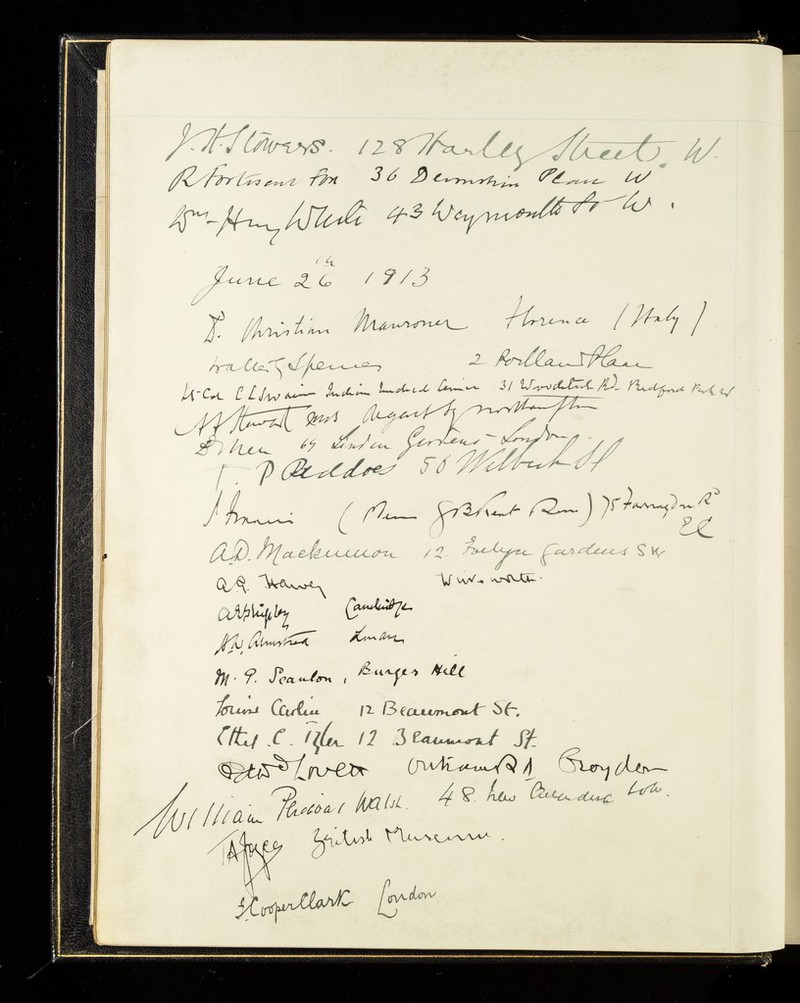 J. H. Stowers. 128 Harley Street. W.
R Fortescue Fox 36 Devonshire Place W.
Wm Henry White 43 Weymouth St W.
June 26th 1913
D. Christian Florence (Italy)
Walter G Spencer 2 Portland Place
Lt-Col Indian Medical Service 31 Woodstock Rd. Bedford Park W
Stewart Northampton
64 Linden Gardens - London.
T. P Beddoes 50 Welbeck St
( ) 75 Farringdon Rd
EC
A.D. Mackinnon 12. Evelyn Gardens SW
A. Harvey
A E Shipley Cambridge
M. P. Scanlon, Burgess Hill
Louise 12 Beaumont St.
Ethel. C. Tyler 12 Beaumont St.
Edwd Lovett Outram Rd Croydon
William Percival Walsh. 48. New Cavendish
T A Joyce British Museum.
J. Cooper Clark London